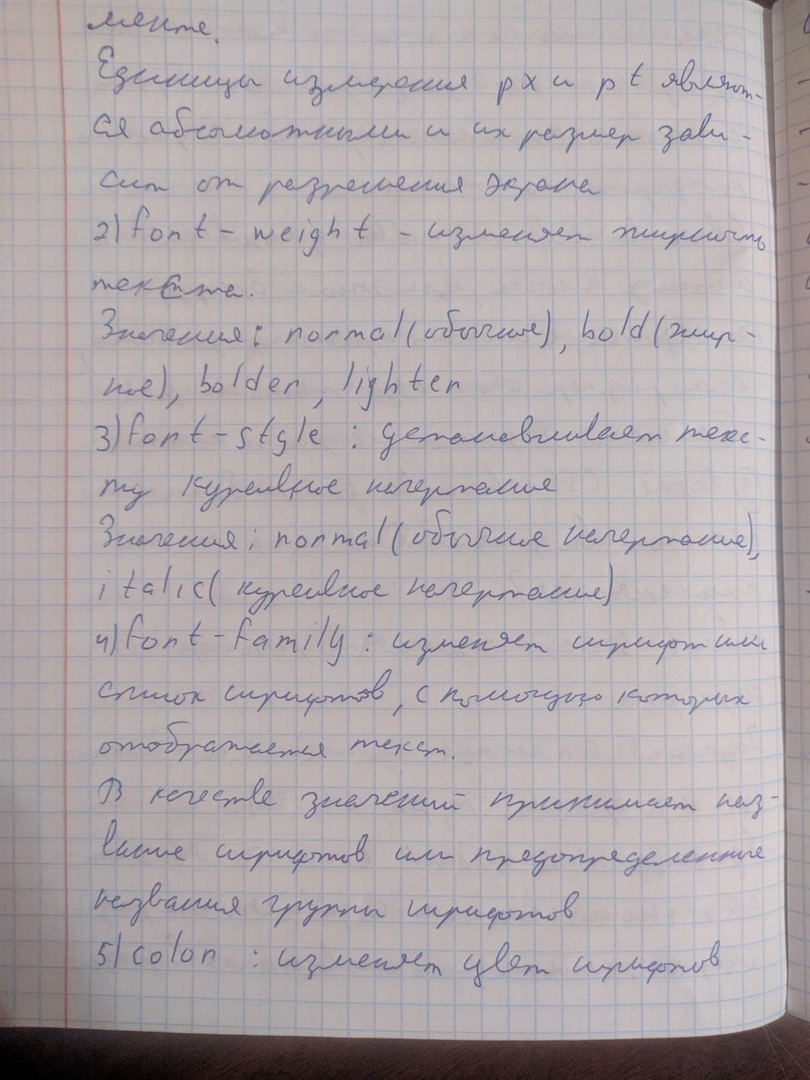 менте.
Единицы измерения px и pt являют-
ся абсолютными и их размер зави-
сит от разрешения экрана
2) font-weight - изменяет жирность
текста.
Значения: normal (обычное), bold (жир-
ное), bolder, lighter
3) font-style : устанавливает текс-
ту курсивное начертание
Значения: normal (обычное начертание),
italic (курсивное начертание)
4) font-family : изменяет шрифт или
список шрифтов, с помощью которых
отображается текст.
В качестве значений принимает наз-
вание шрифтов или предопределенные
названия группы шрифтов
5) color : изменяет цвет шрифтов